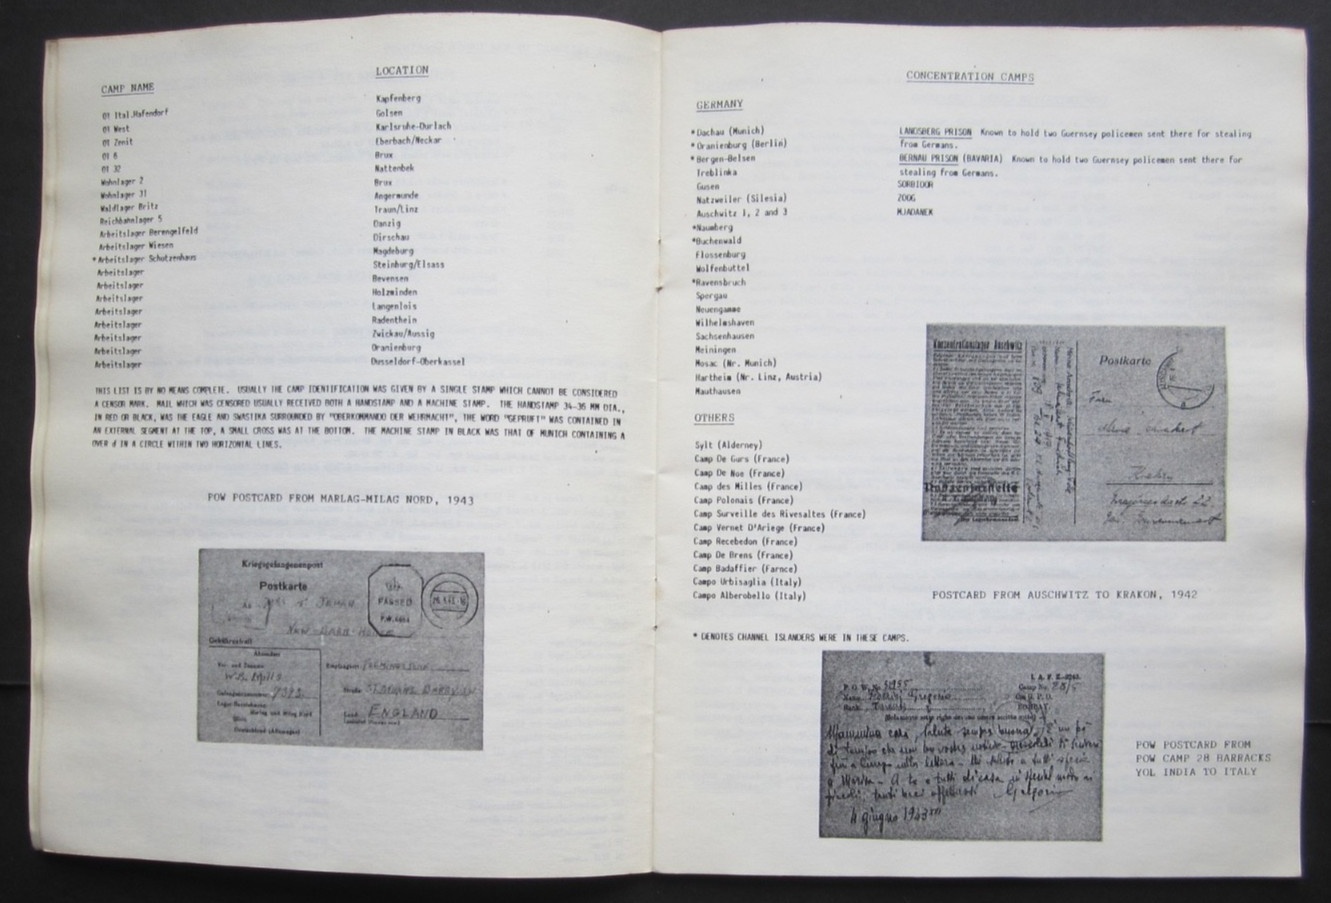 LOCATION
CAMP NAME
01 Ital.Hafendorf Kapfenberg
01 West Golsen
01 Zenit Karlsruhe-Durlach
01 6 Eberbach/Neckar
01 32 Brux
Wohnlager 2 Nattenbek
Wohnlager 31 Brux
Waldlager Britz Angermunde
Reichbahnlager 5 Traun/Linz
Arbeitslager Berengelfeld Danzig
Arbeitslager Wiesen Dirschau
*Arbeitslager Schutzenhaus Magdeburg
Arbeitslager Steinburg/Elsass
Arbeitslager Bevensen
Arbeitslager Holzminden
Arbeitslager Langenlois
Arbeitslager Radenthein
Arbeitslager Zwickau/Aussig
Arbeitslager Oranienburg
Arbeitslager Dusseldorf-Oberkassel
THIS LIST IS BY NO MEANS COMPLETE. USUALLY THE CAMP IDENTIFICATION WAS GIVEN BY A SINGLE STAMP WHICH CANNOT BE CONSIDERED
A CENSOR MARK. MAIL WHICH WAS CENSORED USUALLY RECEIVED BOTH A HANDSTAMP AND A MACHINE STAMP. THE HANDSTAMP 34-36 MM DIA.,
IN RED OR BLACK, WAS THE EAGLE AND SWASTIKA SURROUNDED BY "OBERKOMMANDO DER WEHRMACHT", THE WORD "GEPRUFT" WAS CONTAINED IN
AN EXTERNAL SEGMENT AT THE TOP, A SMALL CROSS WAS AT THE BOTTOM. THE MACHINE STAMP IN BLACK WAS THAT OF MUNICH CONTAINING A
OVER d IN A CIRCLE WITHIN TWO HORIZONTAL LINES.
POW POSTCARD FROM MARLAG-MILAG NORD, 1943
Kriegsgefangenenpost
Postkarte
PASSED
P.W.
Gebührenfrei!
Absender:
Vor- und Zuname:
W.H. Mills
Empfangsort:
Straße:
Land:
ENGLAND
Marlag und Milag Nord
CONCENTRATION CAMPS
GERMANY
*Dachau (Munich)
*Oranienburg (Berlin)
*Bergen-Belsen
Treblinka
Gusen
Natzweiler (Silesia)
Auschwitz 1, 2 and 3
*Naumberg
*Buchenwald
Flossenburg
Wolfenbuttel
*Ravensbruch
Spergau
Neuengamme
Wilhelmshaven
Sachsenhausen
Meiningen
Mosac (Nr. Munich)
Hartheim (Nr. Linz, Austria)
Mauthausen
LANDSBERG PRISON Known to hold two Guernsey policemen sent there for stealing
from Germans.
BERNAU PRISON (BAVARIA) Known to hold two Guernsey policemen sent there for
stealing from Germans.
SORBIOOR
ZOOG
MJADANEK
OTHERS
Sylt (Alderney)
Camp De Gurs (France)
Camp De Noe (France)
Camp des Milles (France)
Camp Polonais (France)
Camp Surveille des Rivesaltes (France)
Camp Vernet D'Ariege (France)
Camp Recebedon (France)
Camp De Brens (France)
Camp Badaffier (Farnce)
Campo Urbisaglia (Italy)
Campo Alberobello (Italy)
Konzentrationslager Auschwitz
Postkarte
POSTCARD FROM AUSCHWITZ TO KRAKON, 1942
* DENOTES CHANNEL ISLANDERS WERE IN THESE CAMPS.
P. O. W. No.
Name
Gregorio
Rank
Camp No. 28/5
Mammina cara, salute sempre buona
Gregorio
4 giugno 1943
POW POSTCARD FROM
POW CAMP 28 BARRACKS
YOL INDIA TO ITALY